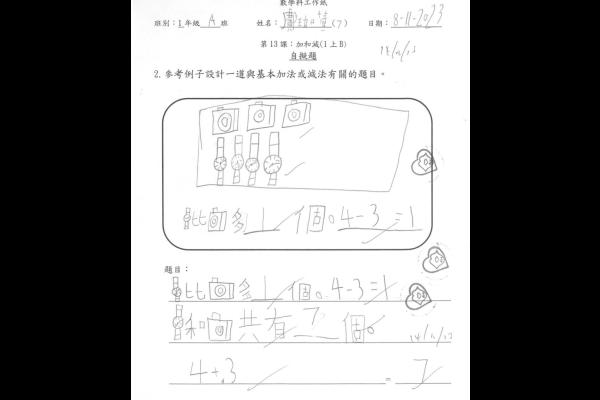 數學科工作紙
班別：1年級 A 班 姓名：(7) 日期：8-11-2023
第13課：加和減(1上B)
自擬題
2. 參考例子設計一道與基本加法或減法有關的題目。
比多1個。4-3=1
題目：
比多1個。4-3=1
和共有7個。
4+3 = 7